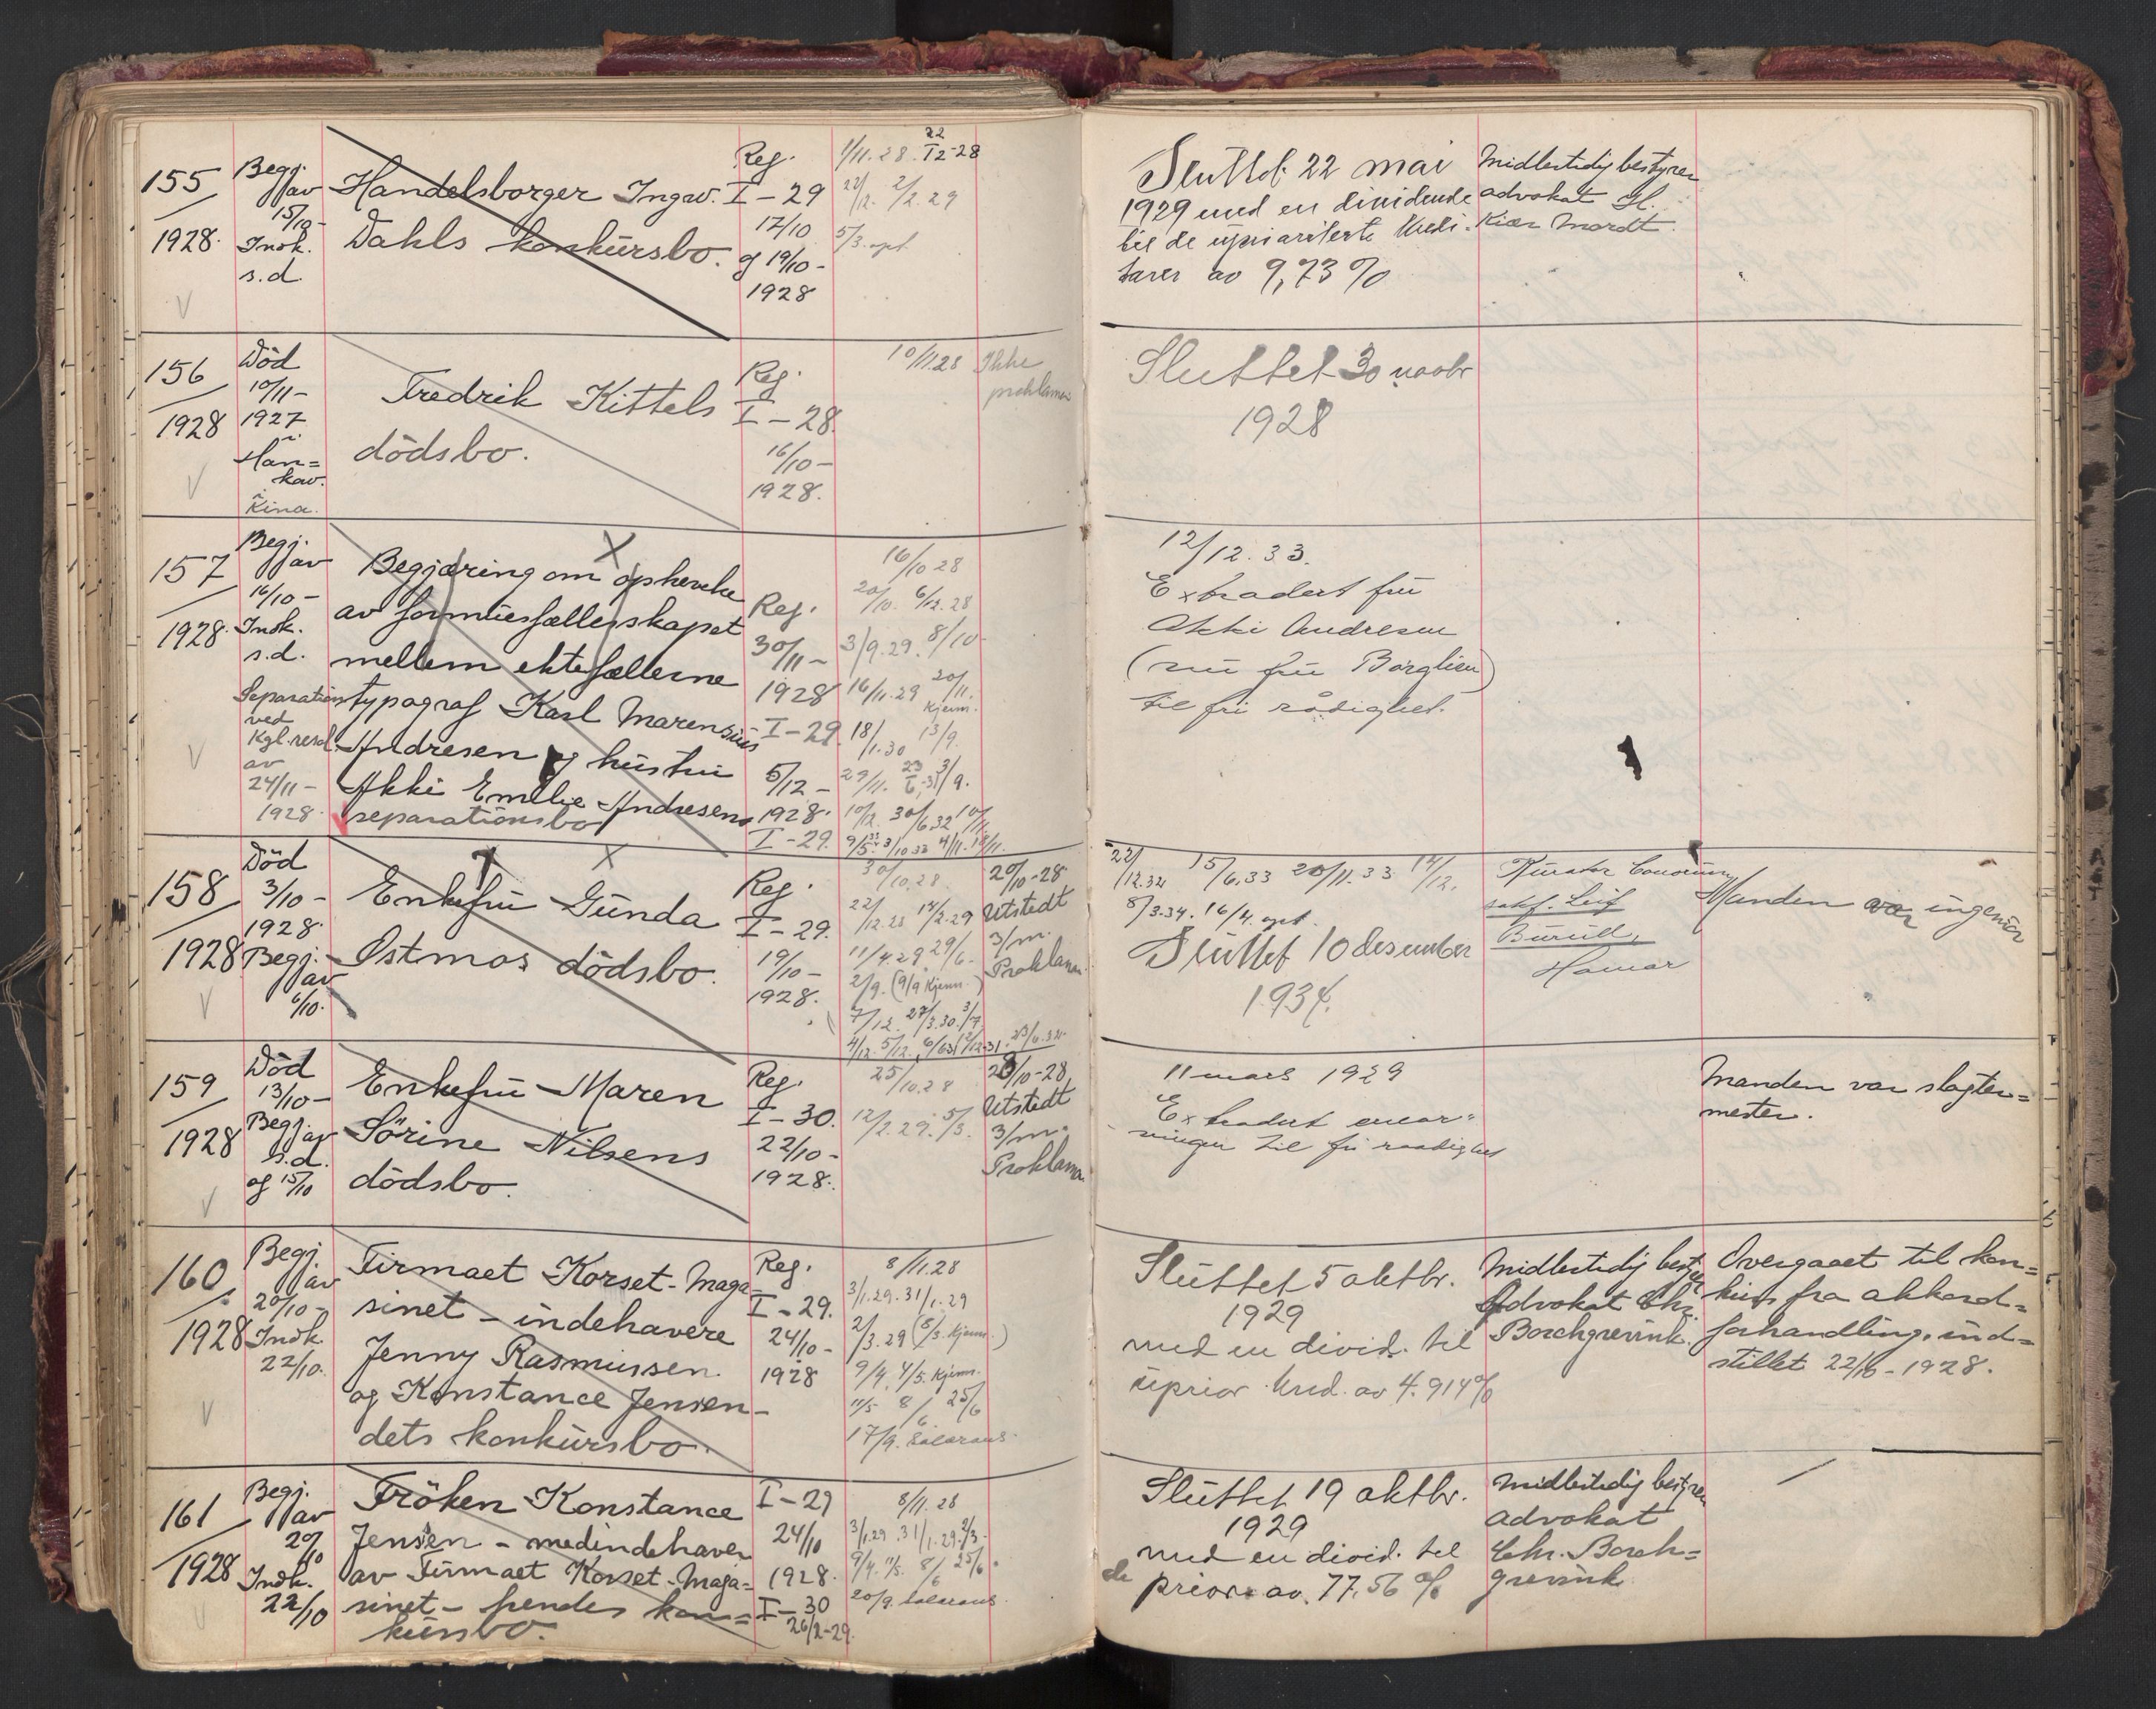 155
1928.
Begj.
av
15/10-
Insk.
s.d.
Handelsborger Ingw.
Dahls konkursbo.
Reg.
I-29
17/10
og 19/10-
1928
1/11.28. 22/12-28
22/12. 2/2.29
5/3. opt.
Sluttet 22 mai
1929 med en dividende
til de upriorterte kredi-
torer av 9,73 %
Midlertidig bestyrer
advokat H.
Kiær Mordt.
156
1928
Död
10/11-
1927
i
Han=
kow.
i
Kina.
Fredrik Kittels
dödsbo.
Reg.
I-28.
16/10-
1928.
10/11.28
Ikke
proklama
Sluttet 30 novbr
1928
157
1928.
Begj.
av
16/10-
Insk.
s.d.
Separation
ved
Kgl. resol.
av
24/11-
1928.
Begjæring om ophevelse
av formuesfællesskapet
mellem ektefællerne
typograf Karl Marensius
Andresen og hustru
Akki Emilie Andresens
separationsbo
Reg.
30/11-
1928
I-29.
5/12-
1928.
I-29.
16/10 28
20/10. 6/12.28
3/9.29. 8/10-
16/11.29 20/11.
Kjenn.
18/1.30 13/9.
29/11. 3/9.
12/12.33.
Extradert fru
Akki Andresen
(nu fru Borglien)
til fri rådighet.
158
1928
Död
3/10-
1928.
Begj.
av
6/10.
Enkefru Gunda
Ostmos dödsbo.
Reg.
I-29.
19/10-
1928.
30/10.28.
22/12.28 14/2.29
11/4.29 29/6-
2/9. (9/9 Kjenn.)
7/12. 27/3.30. 3/7
20/10-28
Utstedt
3/m.
Proklama.
22/12.32 15/6.33 20/11.33 14/12.
8/3.34. 16/4. opt.
Sluttet 10 desember
1934.
Kurator
sakf. Leif
Burull,
Hamar
Manden var ingeniör
159
1928
Död
13/10-
Begj. av
s.d.
og 15/10
Enkefru Maren
Sörine Nilsens
dödsbo.
Reg.
I-30.
22/10-
1928.
25/10.28
12/2.29. 5/3.
23/10-28
Utstedt
3/m.
Proklama
11 mars 1929
Extradert enear-
vingen til fri raadighet
Manden var slagter=
mester.
160
1928
Begj.
av
20/10-
Insk.
22/10.
Firmaet Korset-Maga-
sinet - indehavere
Jenny Rasmussen
og Konstance Jensen-
dets konkursbo.
Reg.
I-29.
24/10-
1928
8/11.28
3/1.29. 31/1.29
2/3.29 (8/3. Kjenn.)
9/4. 4/5. Kjenn.
11/5 8/6 25/6
17/9. Salærans.
Sluttet 5 oktbr.
1929
med en divid. til
uprior. kred. av 4.914%
Midlertidig bestyrer
Advokat Chr.
Borchgrevink.
Overgaaet til kon=
kurs fra akkord=
forhandling, ind=
stillet 22/10-1928.
161
1928
Begj.
av
20/10
Insk.
22/10
Fröken Konstance
Jensen - medindehaver
av Firmaet Korset-Maga=
sinet - hendes kon=
kursbo.
I-29
24/10
1928.
I-30
26/2-29.
8/11.28
3/1.29. 31/1.29. 2/3-
9/4. 11/5. 8/6 25/6.
20/9. Salærans.
Sluttet 19 oktbr.
1929
med en divid. til
de prior. av. 77.56 %
Midlertidig bestyrer
advokat
Chr. Borch=
grevink